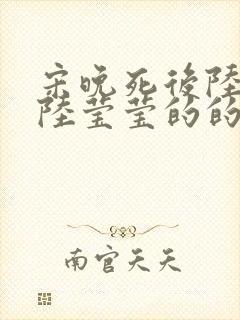 宋晚死後陸
陸瑩瑩的的
南宮天天